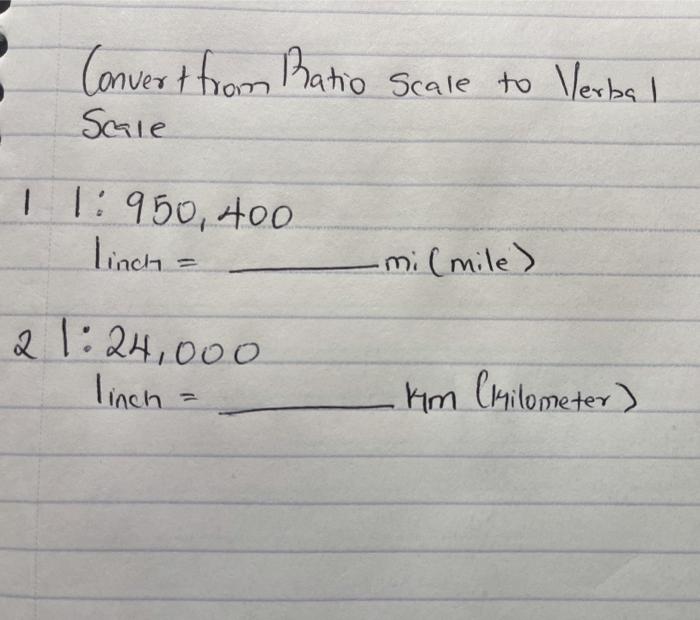 Convert from Ratio Scale to Verbal
Scale
1 1: 950,400
1inch = ________ mi (mile)
2 1: 24,000
1inch = ________ Km (Kilometer)